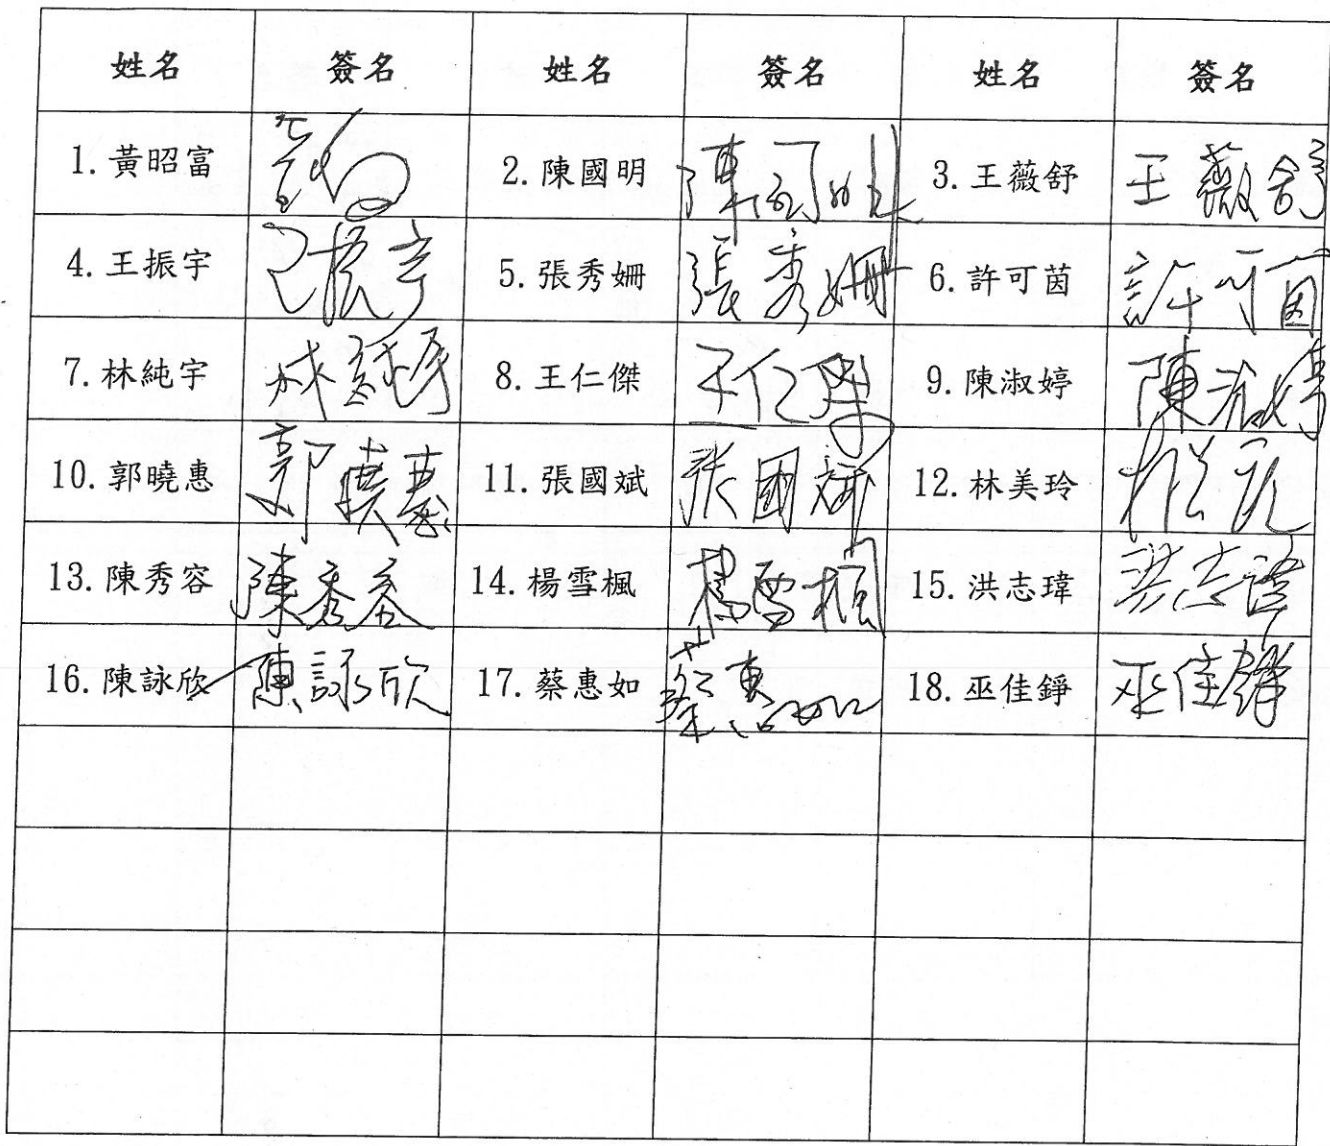 姓名 簽名 姓名 簽名 姓名 簽名
1.黃昭富 2.陳國明 陳國明 3.王薇舒 王薇舒
4.王振宇 王振宇 5.張秀姍 張秀姍 6.許可茵 許可茵
7.林純宇 8.王仁傑 王仁傑 9.陳淑婷 陳淑婷
10.郭曉惠 郭曉惠 11.張國斌 張國斌 12.林美玲
13.陳秀容 陳秀容 14.楊雪楓 楊雪楓 15.洪志瑋 洪志瑋
16.陳詠欣 陳詠欣 17.蔡惠如 蔡惠如 18.巫佳錚 巫佳錚